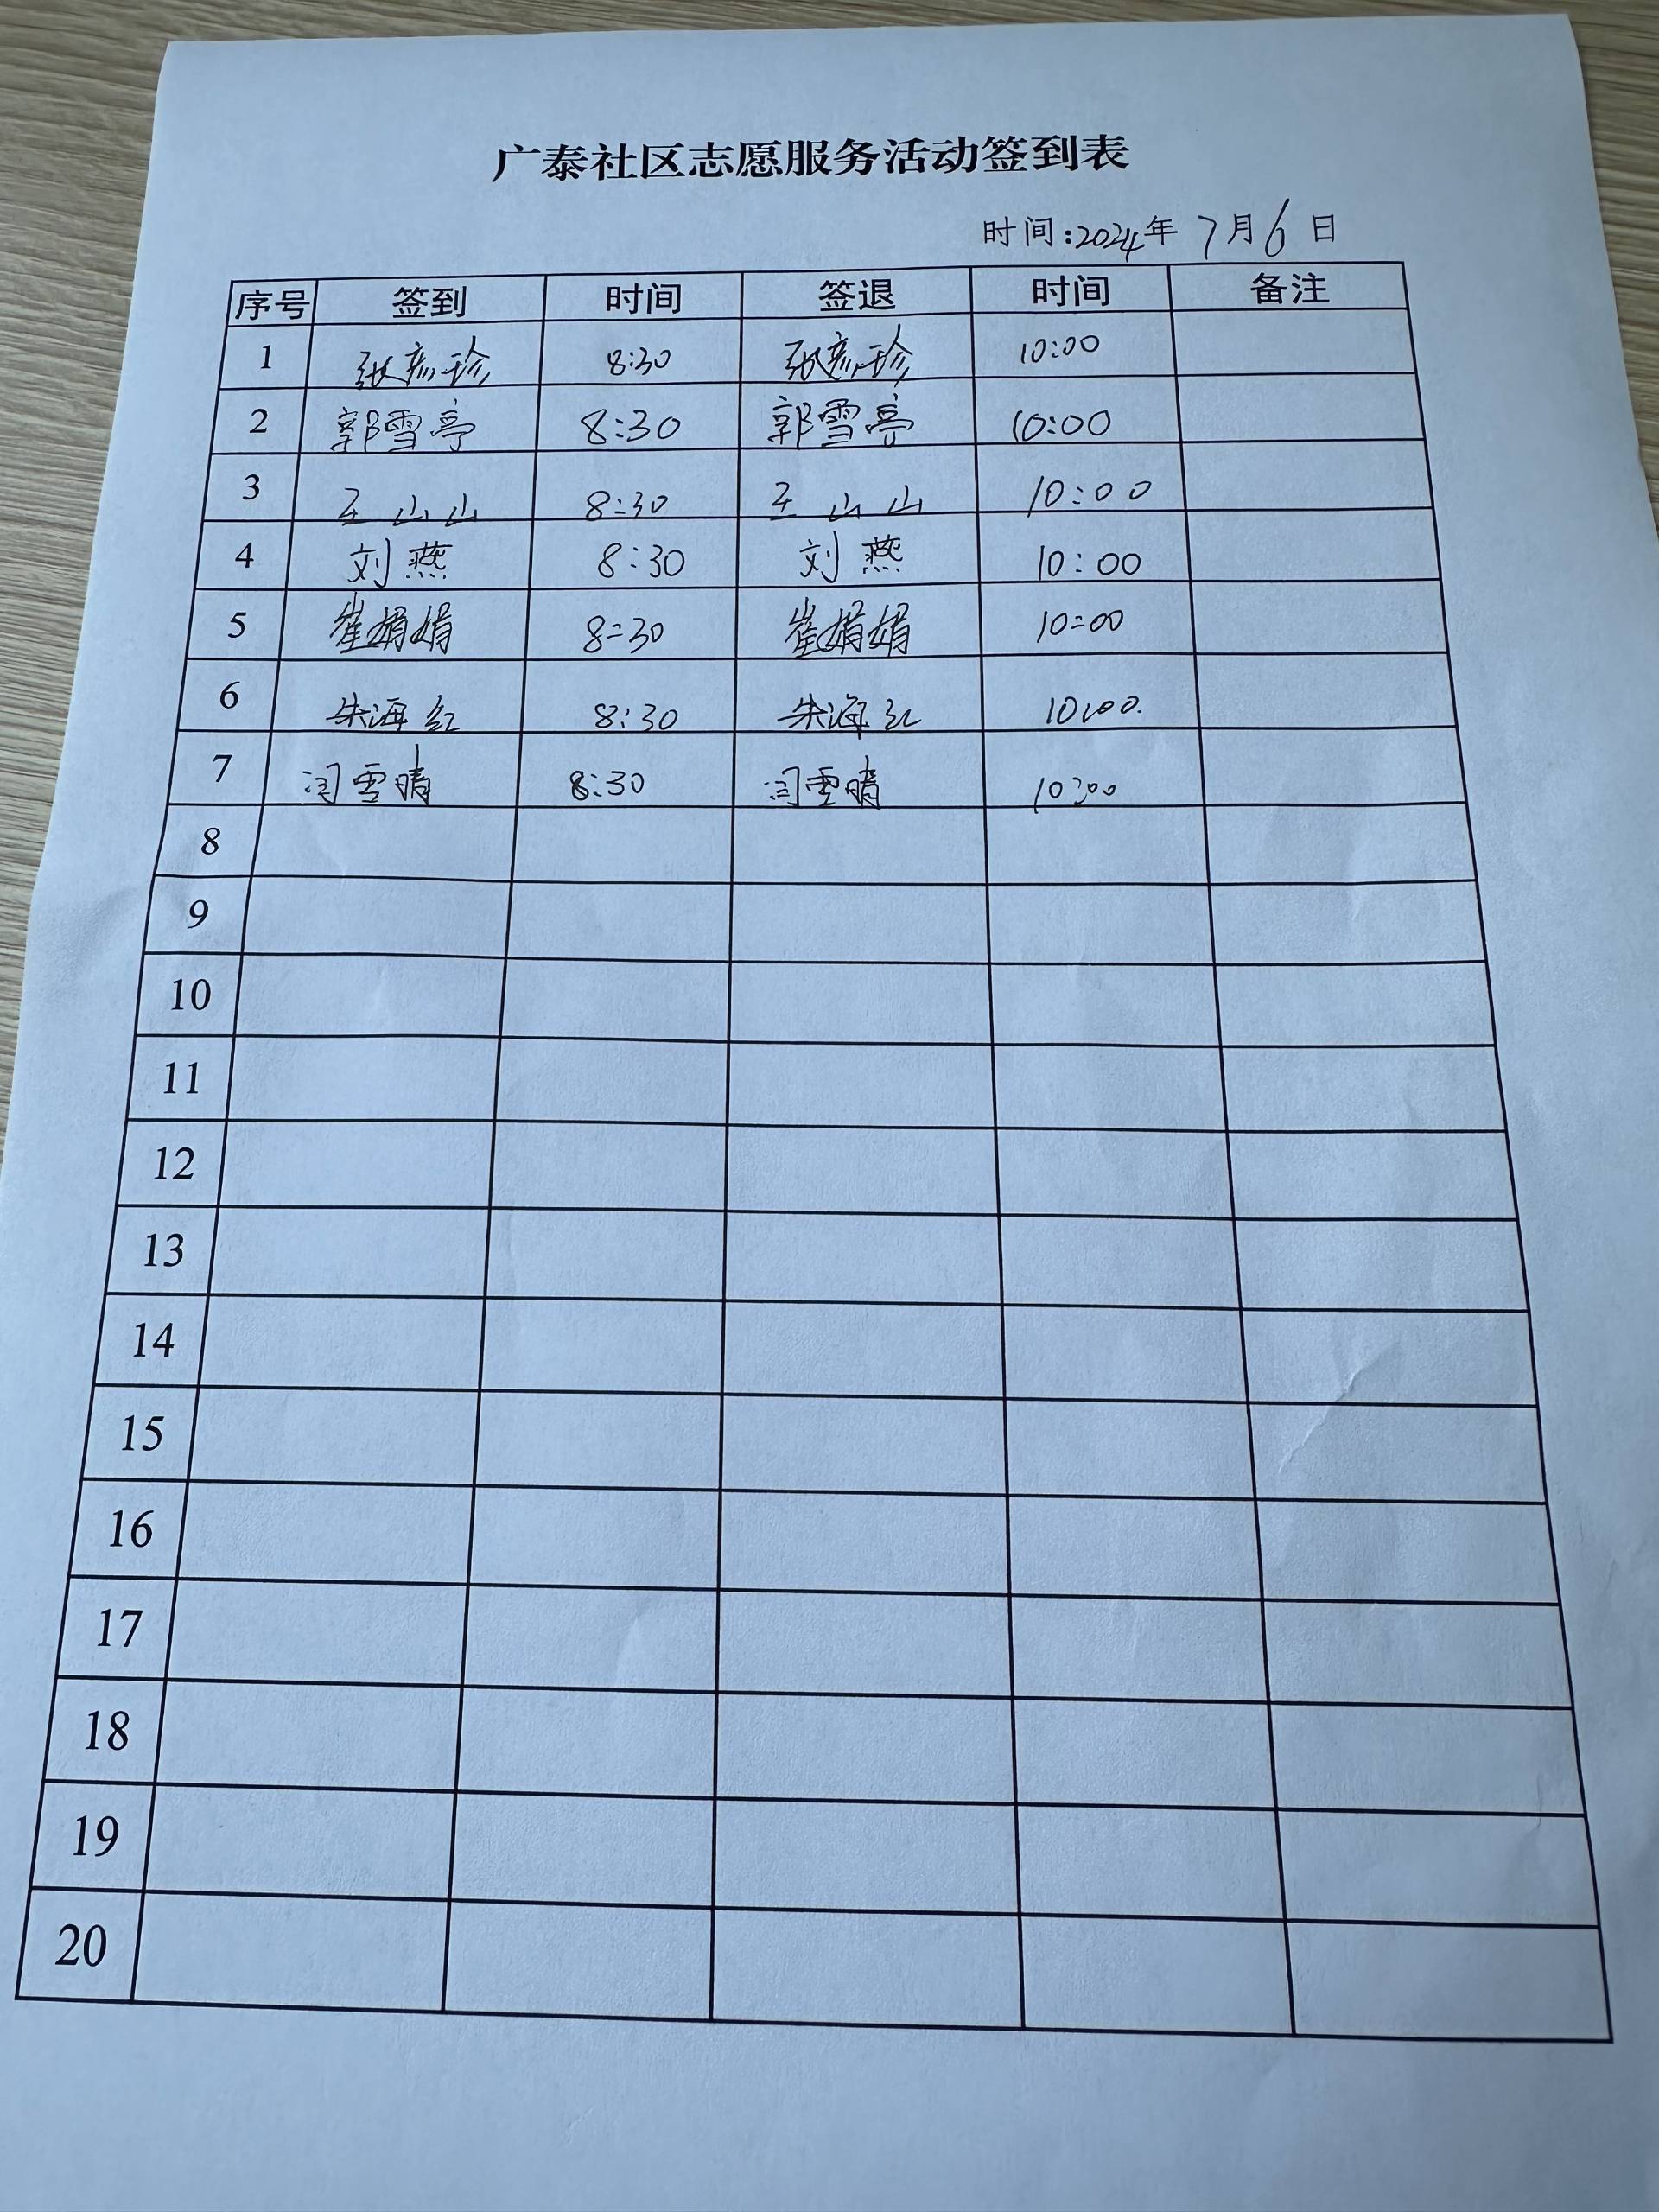 广泰社区志愿服务活动签到表
时间:2024年 7月6日
序号 签到 时间 签退 时间 备注
1 张彦珍 8:30 张彦珍 10:00
2 郭雪亭 8:30 郭雪亭 10:00
3 王山山 8:30 王山山 10:00
4 刘燕 8:30 刘燕 10:00
5 崔娟娟 8:30 崔娟娟 10:00
6 朱海红 8:30 朱海红 10:00
7 闫雪晴 8:30 闫雪晴 10:00
8
9
10
11
12
13
14
15
16
17
18
19
20